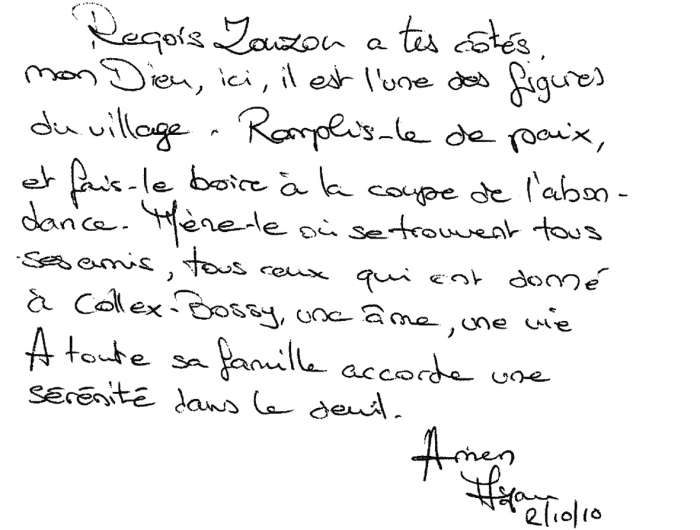 Reçois Zouzou a tes côtés,
mon Dieu, ici, il est l'une des figures
du village. Remplis-le de paix,
et fais-le boire à la coupe de l'abon-
dance. Mène-le où se trouvent tous
ses amis, tous ceux qui ont donné
à Collex-Bossy, une âme, une vie
A toute sa famille accorde une
sérénité dans le deuil.
Amen
2/10/10